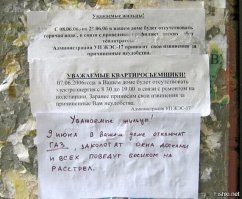 Уважаемые жильцы!
С 08.06.06г по 27.06.06 в вашем доме будет отсутствовать
горячая вода, в связи с
теплотрассы.
Администрация УП ЖЭС-17 приносит свои извинения за
причиненные неудобства.
УВАЖАЕМЫЕ КВАРТИРОСЪЕМЩИКИ!
07.06.2006 года в Вашем доме будет отсутствовать
электроэнергия с 8 30 до 19 00 в связи с ремонтом на
подстанции. Заранее приносим свои извинения за
причиненные Вам неудобства.
Администрация УП ЖЭС-17
Уважаемые жильцы!
9 июня в вашем доме отключат
ГАЗ, заколотят окна досками
и всех поведут босиком на
расстрел.
fishki.net